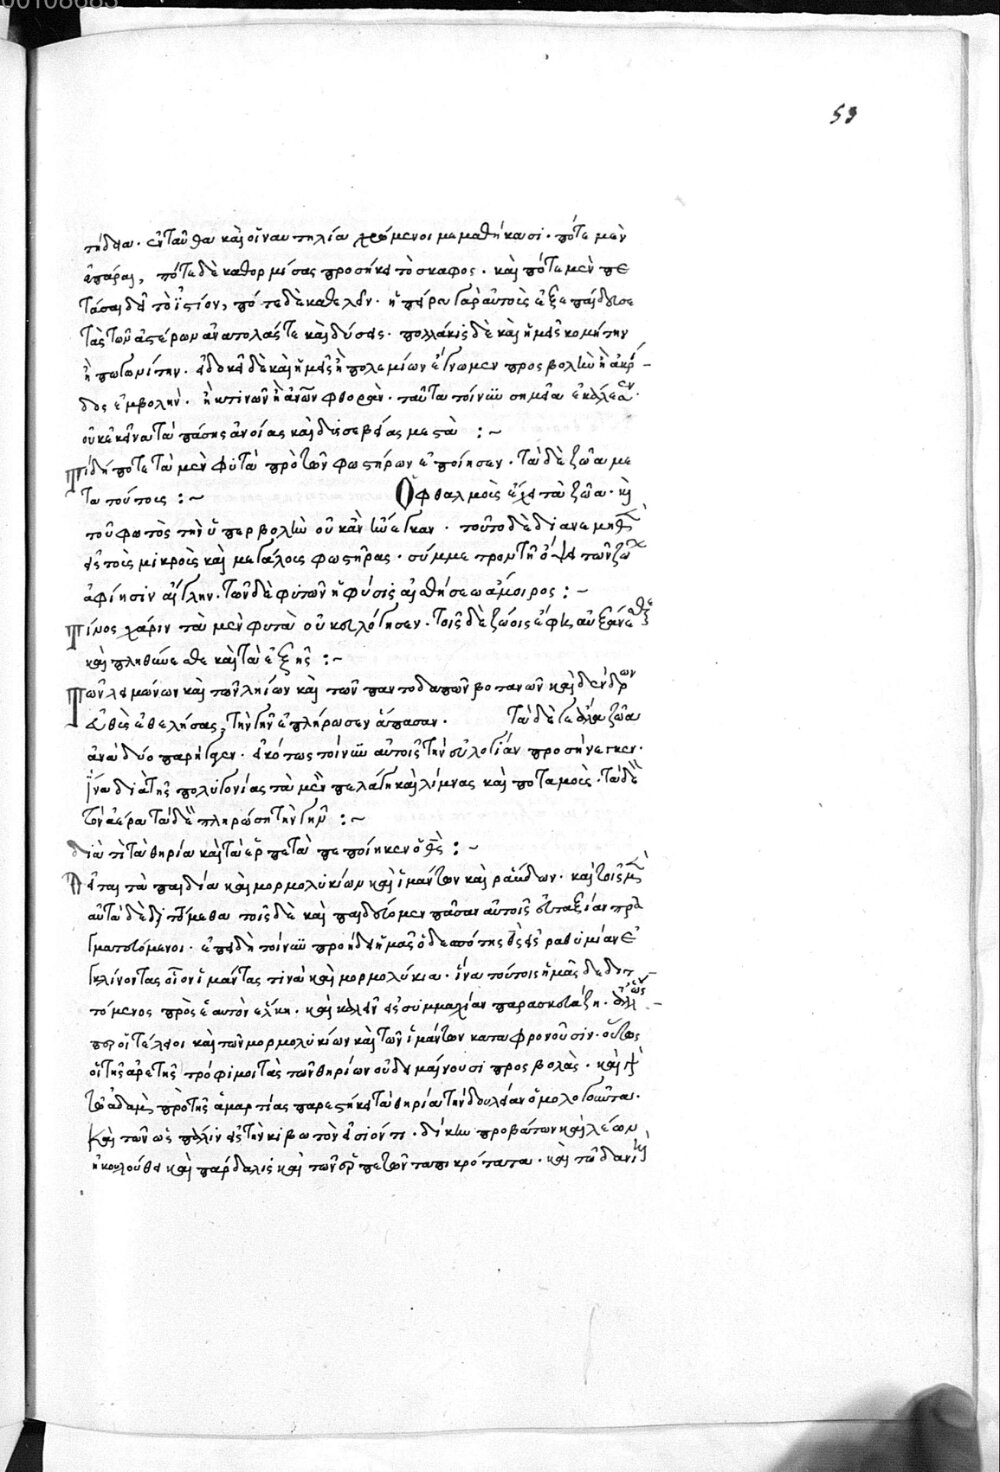 00108683
59
τήδεια. ἐνταῦθα καὶ οἱ ναυτηλία χρώμενοι μεμαθήκασι. πότε μὲν
ἀπάραι, πότε δὲ καθορμίσας προσήκει τὸ σκαφος. καὶ πότε μὲν πε
τάσαι δεῖ τὸ ἱστίον, πότε δὲ καθελεῖν. ἡ πεῖρα γὰρ αὐτοὺς ἐξεπαίδευσε
τὰς τῶν ἀστέρων ἀνατολάς τε καὶ δύσεις. πολλάκις δὲ καὶ ἡμεῖς κομήτην
ἢ πωγωνίτην. εἰδοκεῖ δὲ καὶ ἡμεῖς ἢ πολεμίων ἔγνωμεν προσβολὴν ἢ ἀκρί-
δος ἐμβολὴν. ἢ κτινῶν ἢ ἀνων φθορὰν. ταῦτα τοίνυν σημεῖα ἐκάλεσεν.
οὐκ ἐκεῖνα τὰ πάσης ἀνοίας καὶ δυσσεβείας μεστὰ :~
Τί δή ποτε τὰ μὲν φυτὰ πρὸ τῶν φωστήρων ἐποίησεν. τὰ δὲ ζῶα με
τὰ τούτους :~ Ὀφθαλμοὺς ἔχει τὰ ζῶα. καὶ
τοῦ φωτὸς τὴν ὑπερβολὴν οὐκ ἂν ἤνεγκαν. τοῦτο δὲ διανεμηθὲν
εἰς τοὺς μικροὺς καὶ μεγάλους φωστῆρας. σύμμετρον τῆ ὄψει τῶν ζώων
ἀφίησιν αἴγλην. τῶν δὲ φυτῶν ἡ φύσις αἰσθήσεως ἄμοιρος :~
Τίνος χάριν τὰ μὲν φυτὰ οὐκ εὐλόγησεν. τοῖς δὲ ζώοις ἔφη αὐξάνεσθε
καὶ πληθύνεσθε καὶ τὰ ἑξῆς :~
Τῶν λειμώνων καὶ τῶν ληίων καὶ τῶν παντοδαπῶν βοτανῶν καὶ δένδρων
εὐθὺς ἐθελήσας, τὴν γῆν ἐπλήρωσεν ἅπασαν. Τὰ δέ γε ἄλλα ζῶα
ἀνὰ δύο παρήγαγεν. εἰκότως τοίνυν αὐτοῖς τὴν εὐλογίαν προσήνεγκεν.
ἵνα διὰ τῆς πολυγονίας τὰ μὲν πελάγη καὶ λίμνας καὶ ποταμοὺς. τὰ δὲ
τὸν ἀέρα τὰ δὲ πληρώση τὴν γῆν :~
διὰ τί τὰ θηρία καὶ τὰ ἑρπετὰ πεποίηκεν ὁ θς :~
Δεῖται τὰ παιδία καὶ μορμολυκίων καὶ ἱμάντων καὶ ῥάβδων. καὶ τοῖς μὲν
αὐτὰ δεδιττόμεθα τοῖς δὲ καὶ παιδεύομεν πᾶσαν αὐτοῖς εὐταξίαν πρα
γματευόμενοι. ἐπειδὴ τοίνυν προήδει ἡμᾶς ὁ δεσπότης θς εἰς ῥαθυμίαν ἐ
γκλίνοντας οἷον ἱμάντας τινὰ καὶ μορμολύκια. ἵνα τούτοις ἡμᾶς δεδιτ-
τόμενος πρὸς ἑαυτὸν ἕλκη. καὶ καλεῖν εἰς συμμαχίαν παρασκευάζη. ἀλλ' ὥς-
περ οἱ τέλειοι καὶ τῶν μορμολυκίων καὶ τῶν ἱμάντων καταφρονοῦσιν. οὕτως
οἱ τῆς ἀρετῆς τρόφιμοι τὰς τῶν θηρίων οὐ δειμαίνουσι προσβολὰς. καὶ γὰρ
τῶ ἀδαμ πρὸ τῆς ἁμαρτίας παρεστήκει τὰ θηρία τὴν δουλείαν ὁμολογοῦντα.
καὶ τῶ νῶε πάλιν εἰς τὴν κιβωτὸν εἰσιόντι. δίκην προβάτων καὶ λέων
ἠκολούθει καὶ πάρδαλις καὶ τῶν ἑρπετῶν τα πικρότατα. καὶ τῶ δανιὴλ